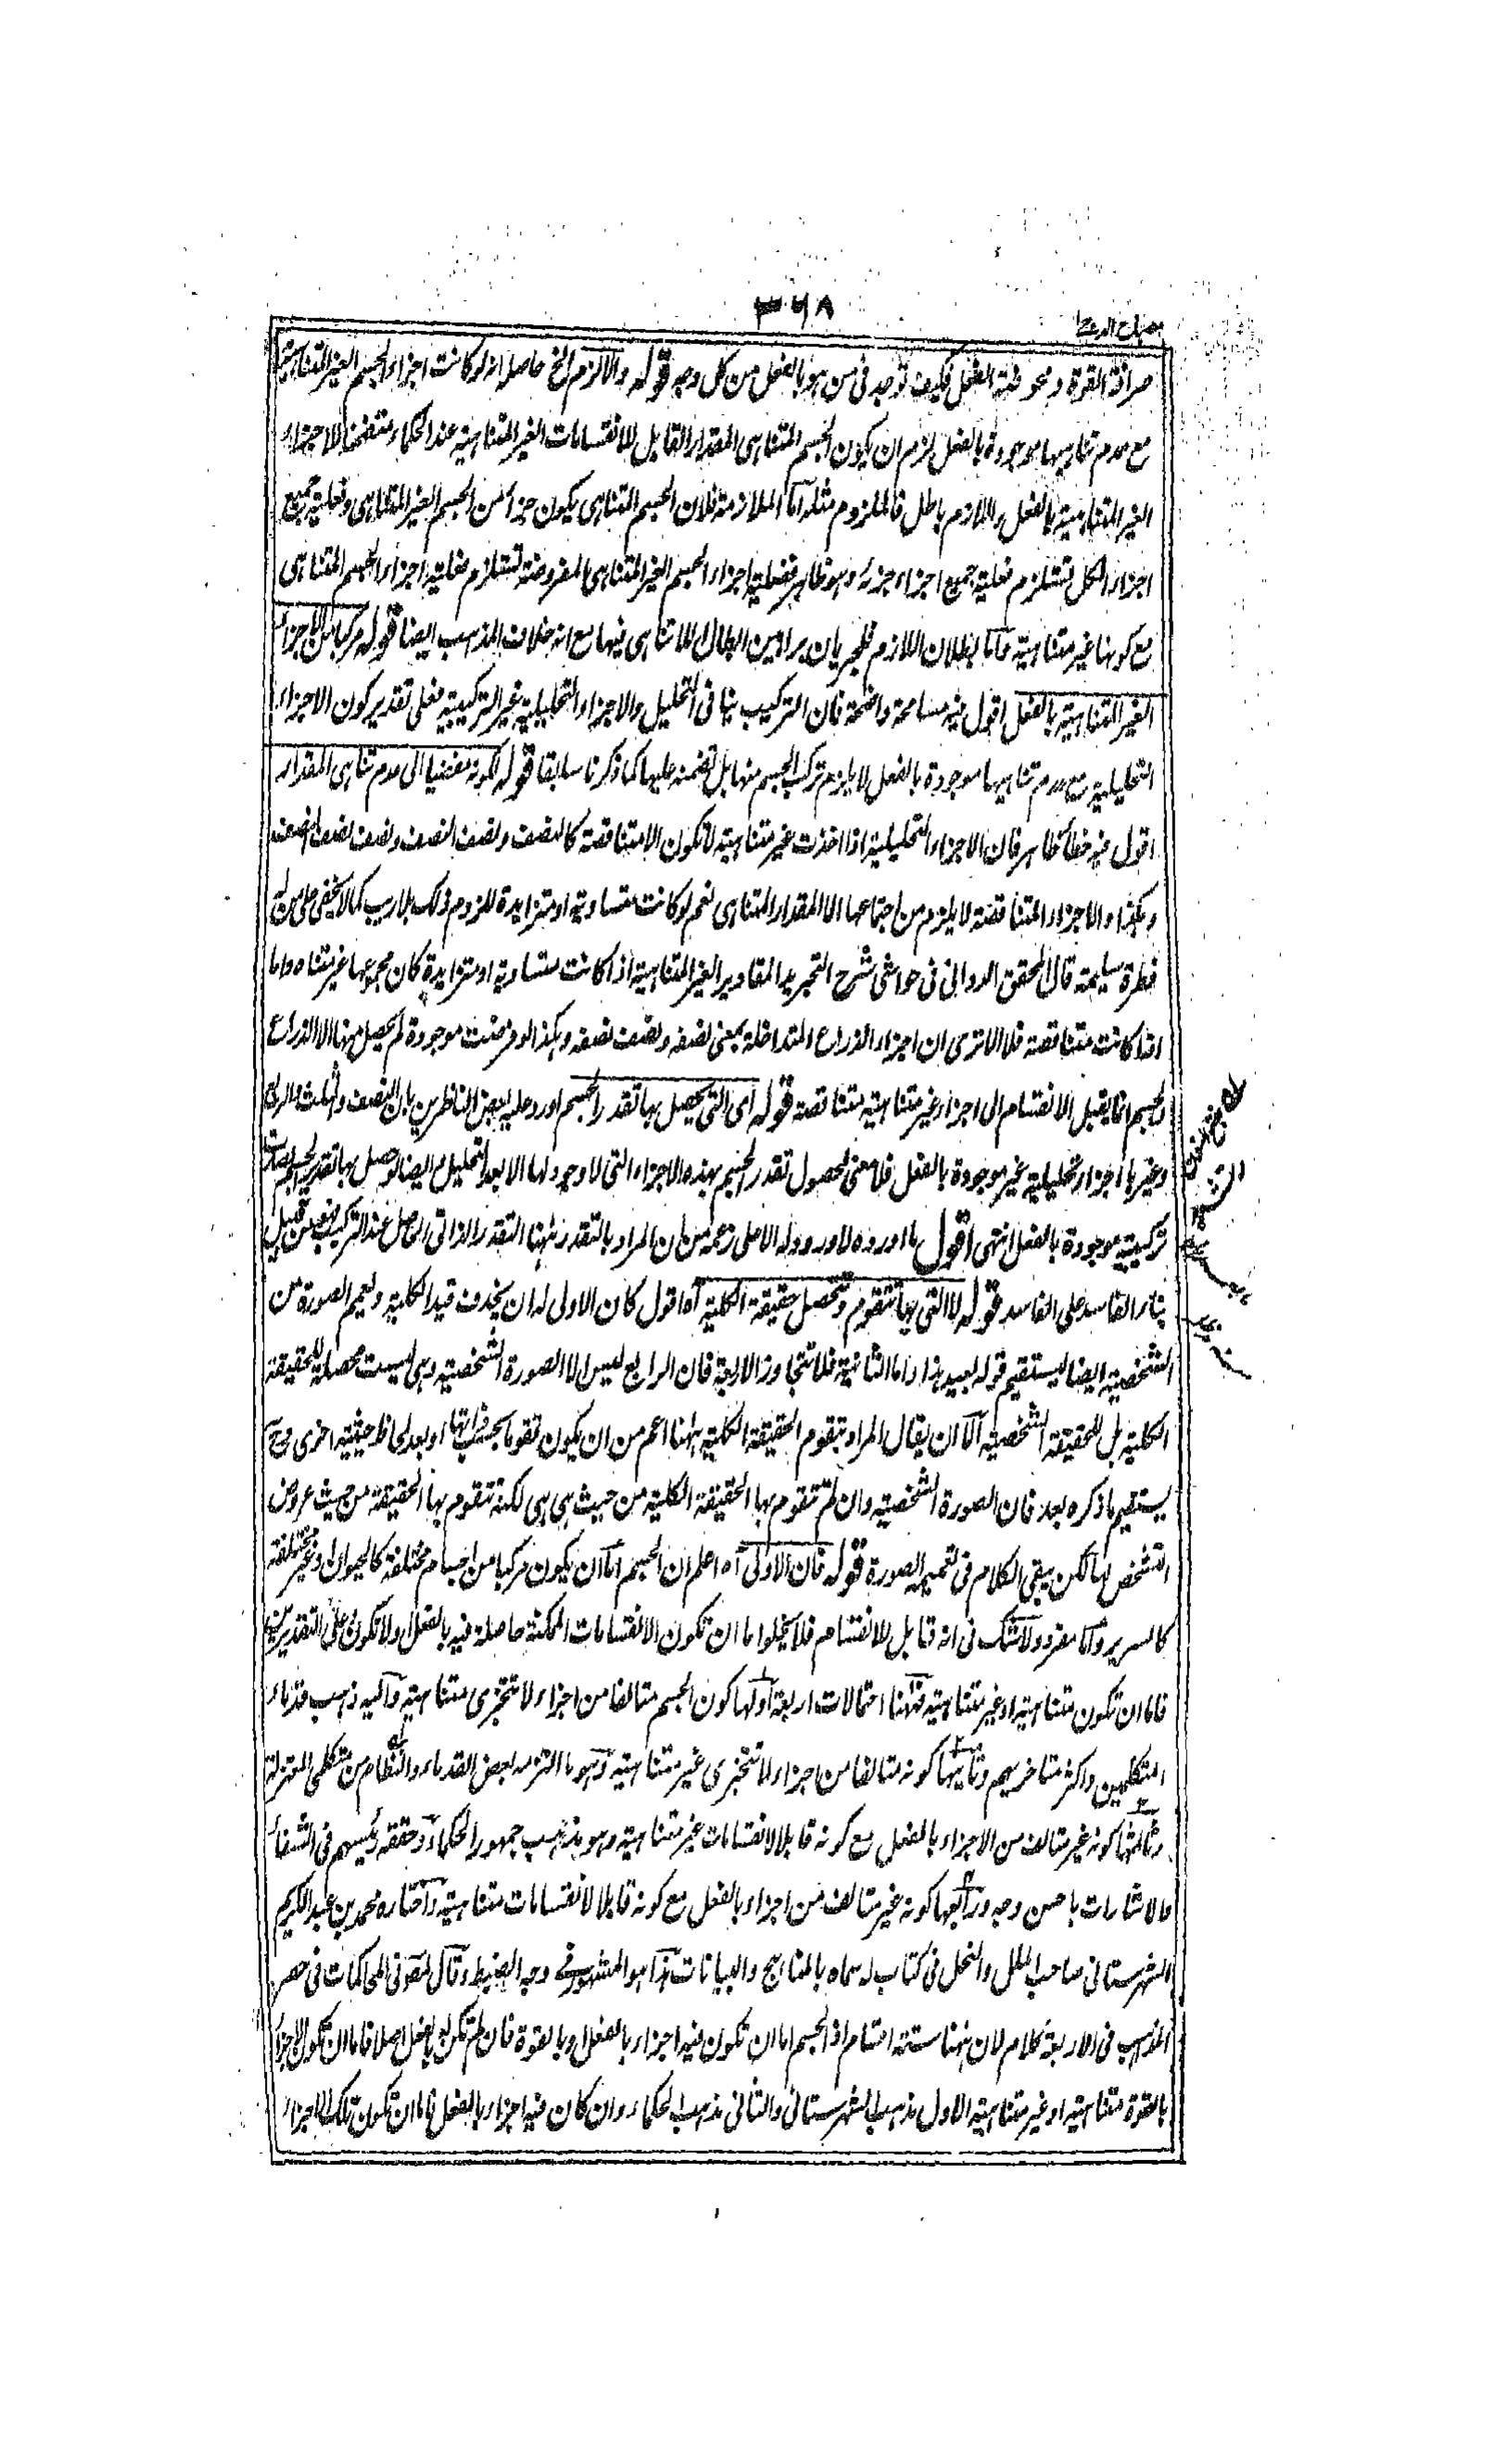 ٣٦٨
مصباح الدجى
صرافة القوة ومحوضة الفعل فكيف توجد فى من هو بالفعل من كل وجه قوله والالزم الخ حاصله انه لو كانت اجزاء الجسم الغير المتناهية
مع عدم تناهيها موجودة بالفعل لزم ان يكون الجسم المتناهى المقدار القابل للانقسامات الغير المتناهية عند الحكماء متضمنا للاجزاء
الغير المتناهية بالفعل واللازم باطل فالملزوم مثله اما الملازمة فلان الجسم المتناهى يكون جزأ من الجسم الغير المتناهى وفعلية جميع
اجزاء الكل تستلزم فعلية جميع اجزاء جزئه وهو ظاهر ففعلية اجزاء الجسم الغير المتناهى المفروضة تستلزم فعلية اجزاء الجسم المتناهى
مع كونها غير متناهية واما بطلان اللازم فلجريان براهين ابطال اللاتناهى فيها مع انه خلاف المذهب ايضا قوله مركبا من الاجزاء
الغير المتناهية بالفعل اقول فيه مسامحة واضحة فان التركيب ينافى التحليل والاجزاء التحليلية غير التركيبية فعلى تقدير كون الاجزاء
التحليلية مع عدم تناهيها موجودة بالفعل لا يلزم تركب الجسم منها بل تضمنه عليها كما ذكرنا سابقا قوله لكونه مفضيا الى عدم تناهى المقدار
اقول فيه خطأ ظاهر فان الاجزاء التحليلية اذا اخذت غير متناهية لا تكون الا متناقصة كالنصف ونصف النصف ونصف نصف النصف
وهكذا والاجزاء المتناقصة لا يلزم من اجتماعها الا المقدار المتناهى نعم لو كانت متساوية او متزايدة للزوم ذلك بلا ريب كما لا يخفى على من له
فطرة سليمة قال المحقق الدوانى فى حواشى شرح التجريد المقادير الغير المتناهية اذا كانت متساوية او متزايدة كان مجموعها غير متناه واما
اذا كانت متناقصة فلا الا ترى ان اجزاء الذراع المتداخلة بمعنى نصفه ونصف نصفه وهكذا لو فرضت موجودة لم يحصل منها الا الذراع
والجسم انما يقبل الانقسام الى اجزاء غير متناهية متناقصة قوله اى التى يحصل بها تقدر الجسم اورد عليه بعض الناظرين بان النصف والثلث والربع
وغيرها اجزاء تحليلية غير موجودة بالفعل فلا معنى لحصول تقدر الجسم بهذه الاجزاء التى لا وجود لها الا بعد التحليل ايضا لو حصل بها تقدير الجسم لصارت
تركيبية موجودة بالفعل انتهى اقول ما اورده لا ورود له الا على زعمه من ان المراد بالتقدر ههنا التقدر الذاتى الحاصل عند التركيب فهو من قبيل
بناء الفاسد على الفاسد قوله لا التى بها تتقوم وتتحصل حقيقة الكلية آه اقول كان الاولى له ان يحذف قيد الكلية ويعمم الصورة من
الشخصية ايضا ليستقيم قوله بعيد هذا واما الثانية فلا تتجاوز الاربعة فان الرابع ليس الا الصورة الشخصية وهى ليست محصلة للحقيقة
الكلية بل للحقيقة الشخصية الا ان يقال المراد بتقوم الحقيقة الكلية ههنا اعم من ان يكون تقوما بحسب ذاتها او بعد لحاظ حيثية اخرى وح
يستقيم ما ذكره بعد فان الصورة الشخصية وان لم تتقوم بها الحقيقة الكلية من حيث هى هى لكنه تتقوم بها الحقيقة من حيث عروض
التشخص لها لكن يبقى الكلام فى تعميم الصورة قوله فان الاولى آه اعلم ان الجسم اما ان يكون مركبا من اجسام مختلفة كالحيوان او غير مختلفة
كالسرير واما مفرد ولا شك فى انه قابل للانقسام فلا يخلو اما ان تكون الانقسامات الممكنة حاصلة فيه بالفعل او لا تكون على التقديرين
فاما ان تكون متناهية او غير متناهية فههنا احتمالات اربعة اولها كون الجسم متالفا من اجزاء لا تتجزى متناهية واليه ذهب قدماء
المتكلمين واكثر متاخريهم وثانيها كونه متالفا من اجزاء لا تتجزى غير متناهية وهو ما التزمه بعض القدماء والنظام من متكلمى المعتزلة
وثالثها كونه غير متالف من الاجزاء بالفعل مع كونه قابلا لانقسامات غير متناهية وهو مذهب جمهور الحكماء وحققه رئيسهم فى الشفاء
والاشارات باحسن وجه ورابعها كونه غير متالف من اجزاء بالفعل مع كونه قابلا لانقسامات متناهية واختاره محمد بن عبد الكريم
الشهرستانى صاحب الملل والنحل فى كتاب له سماه بالمناهج والبيانات هذا هو المشهور فى وجه الضبط وقال فى المحاكمات فى حصر
المذهب فى الاربعة كلام لان ههنا ستة اقسام اذ الجسم اما ان تكون فيه اجزاء بالفعل او بالقوة فان لم تكن بالفعل اصلا فاما ان تكون الاجزاء
بالقوة متناهية او غير متناهية الاول مذهب الشهرستانى والثانى مذهب الحكماء وان كان فيه اجزاء بالفعل فاما ان تكون تلك الاجزاء